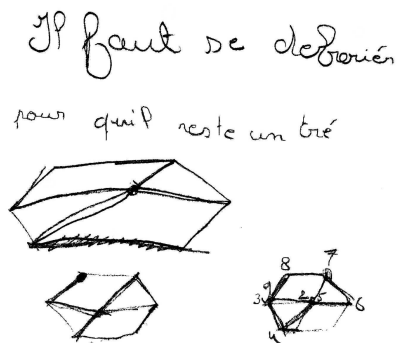 Il faut se
pour quil reste un tré
8 7
9
3 2 5 6
4